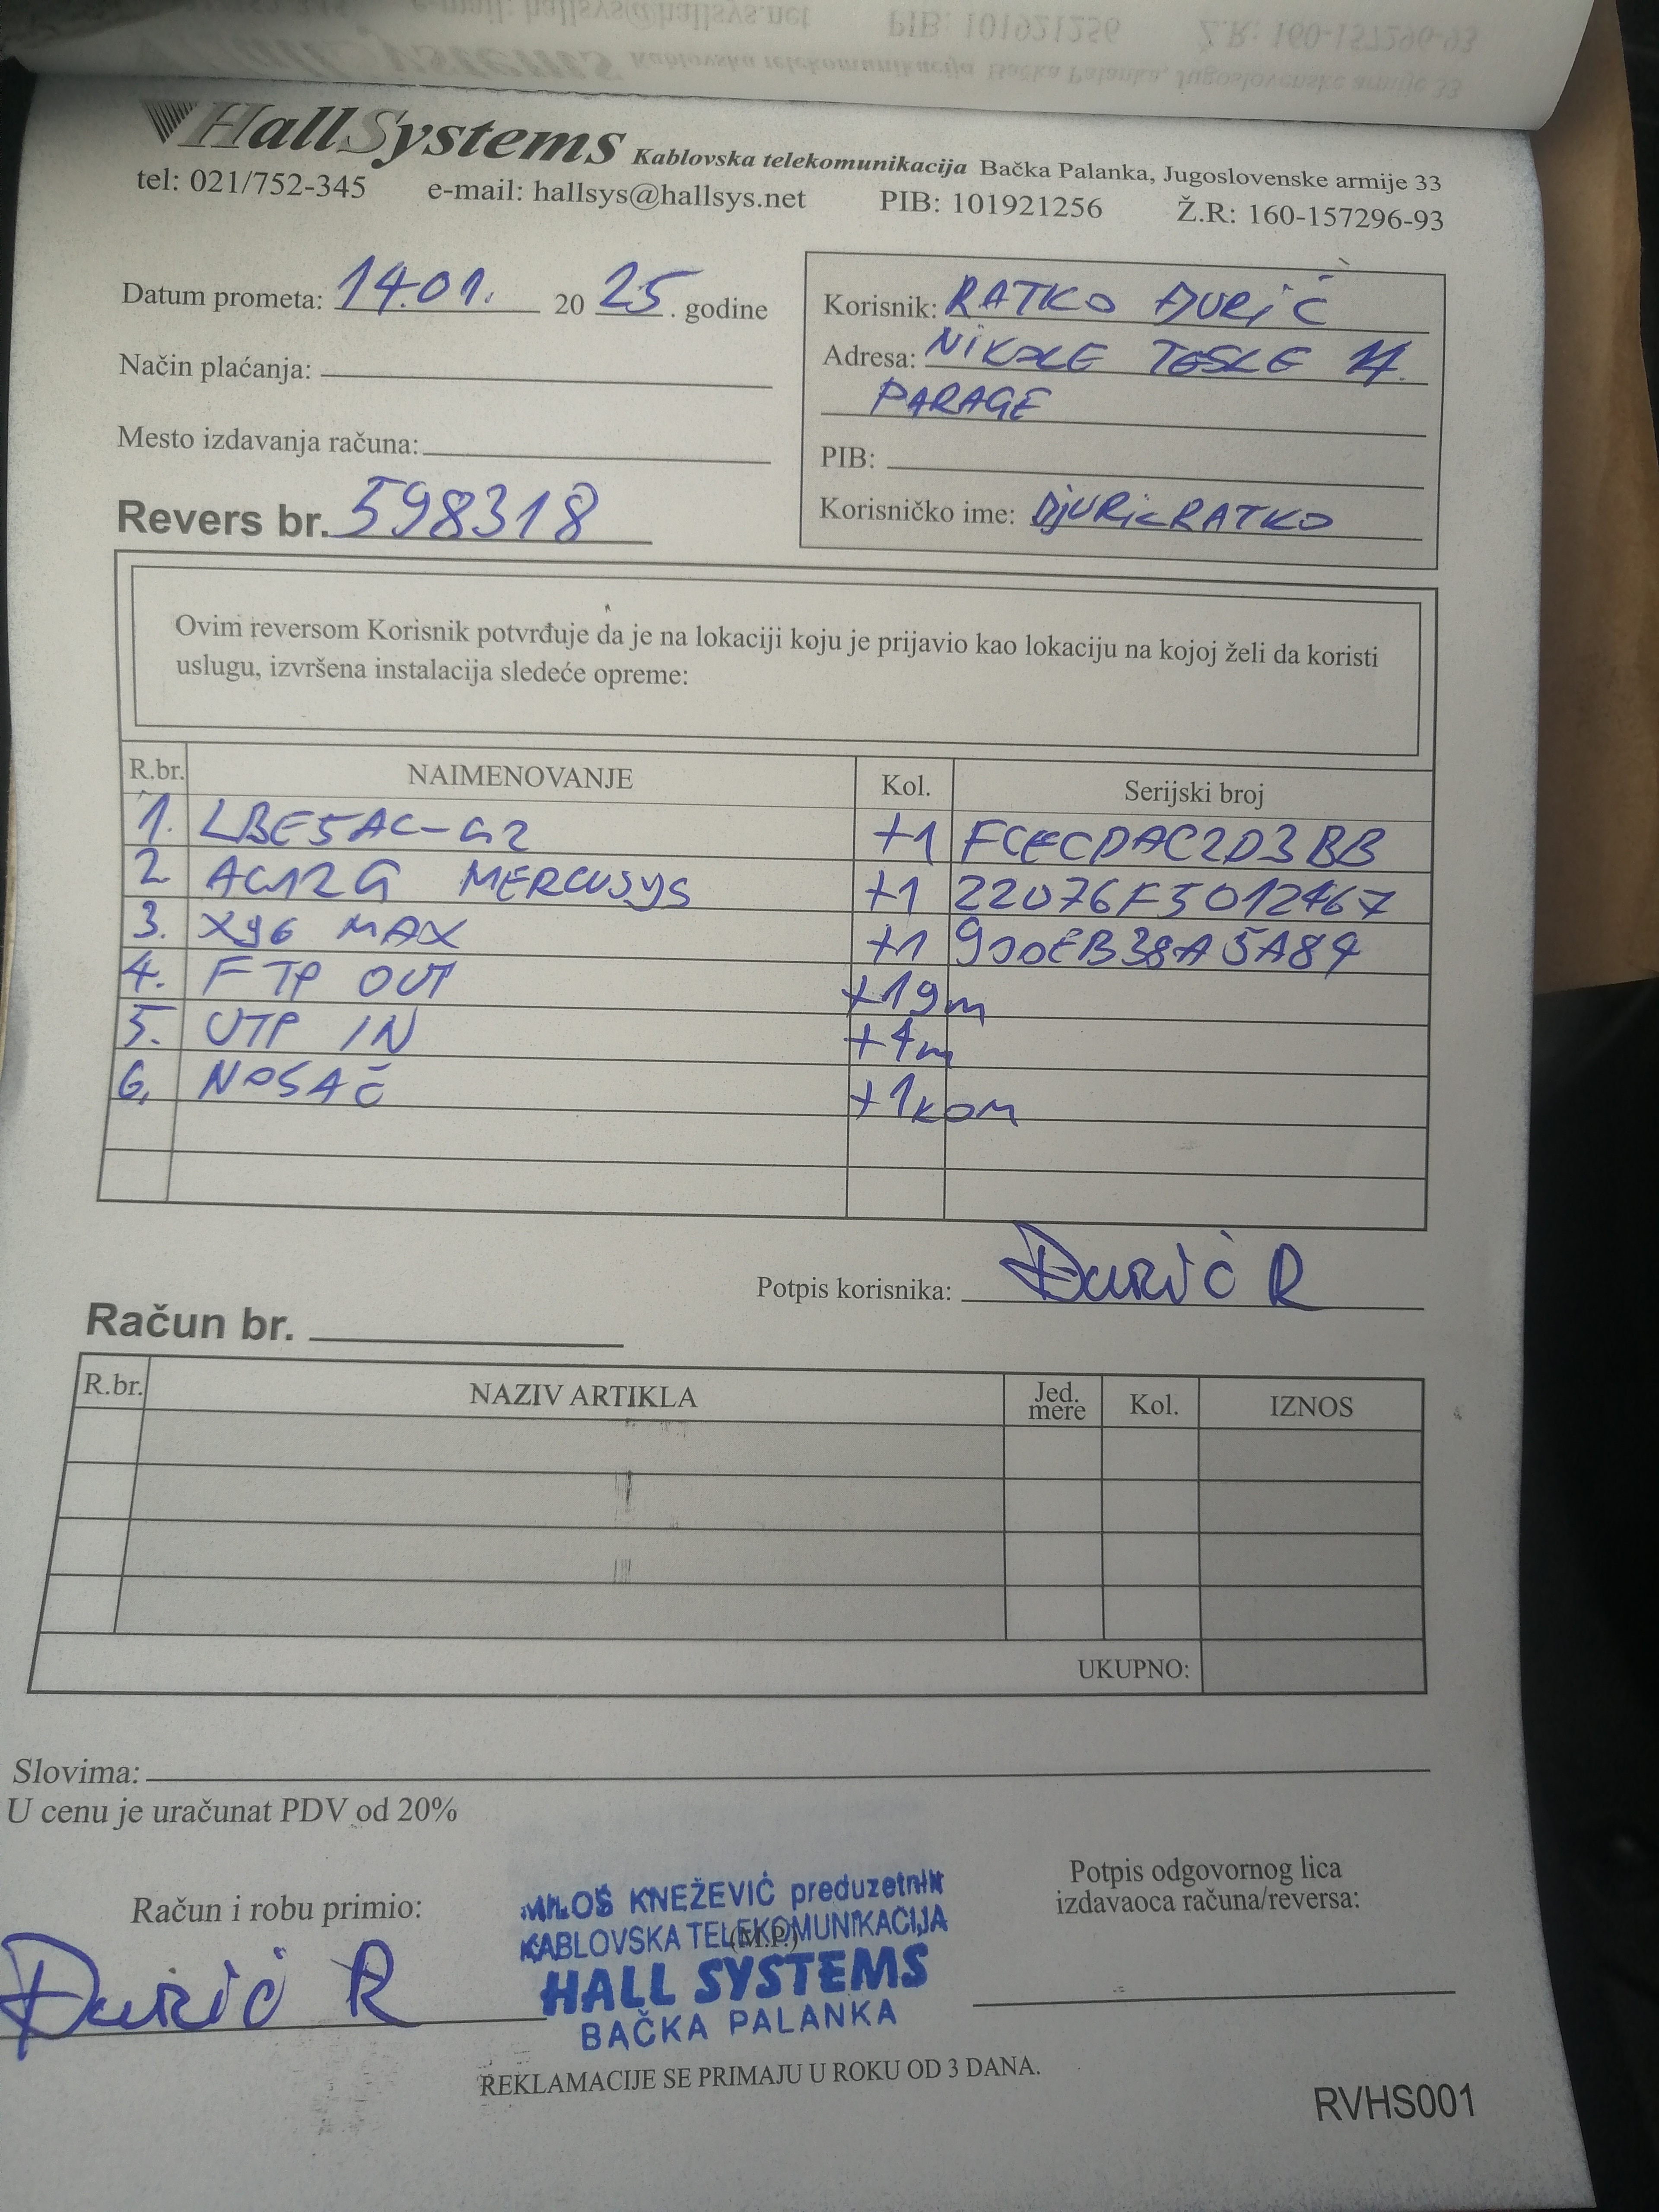 HallSystems Kablovska telekomunikacija Bačka Palanka, Jugoslovenske armije 33
tel: 021/752-345 e-mail: hallsys@hallsys.net PIB: 101921256 Ž.R: 160-157296-93
Datum prometa: 14.01. 20 25. godine
Način plaćanja:
Mesto izdavanja računa:
Revers br. 598318
Korisnik: RATKO ĐURIĆ
Adresa: NIKOLE TESLE
PARAGE
PIB:
Korisničko ime: DjURicRATKO
Ovim reversom Korisnik potvrđuje da je na lokaciji koju je prijavio kao lokaciju na kojoj želi da koristi
uslugu, izvršena instalacija sledeće opreme:
R.br. NAIMENOVANJE Kol. Serijski broj
1. LBE5AC-G2 +1 FCECDAC2D3BB
2 AC12G MERCUSYS +1 22076F5012467
3. X96 MAX +1 900EB38A5A84
4. FTP OUT +19m
5. UTP IN +4m
6. NOSAČ +1kom
Potpis korisnika: Đurić R
Račun br.
R.br. NAZIV ARTIKLA Jed. mere Kol. IZNOS
UKUPNO:
Slovima:
U cenu je uračunat PDV od 20%
Račun i robu primio:
Đurić R
MILOŠ KNEŽEVIĆ preduzetnik
KABLOVSKA TELEKOMUNIKACIJA
(M.P.)
HALL SYSTEMS
BAČKA PALANKA
Potpis odgovornog lica
izdavaoca računa/reversa:
REKLAMACIJE SE PRIMAJU U ROKU OD 3 DANA.
RVHS001